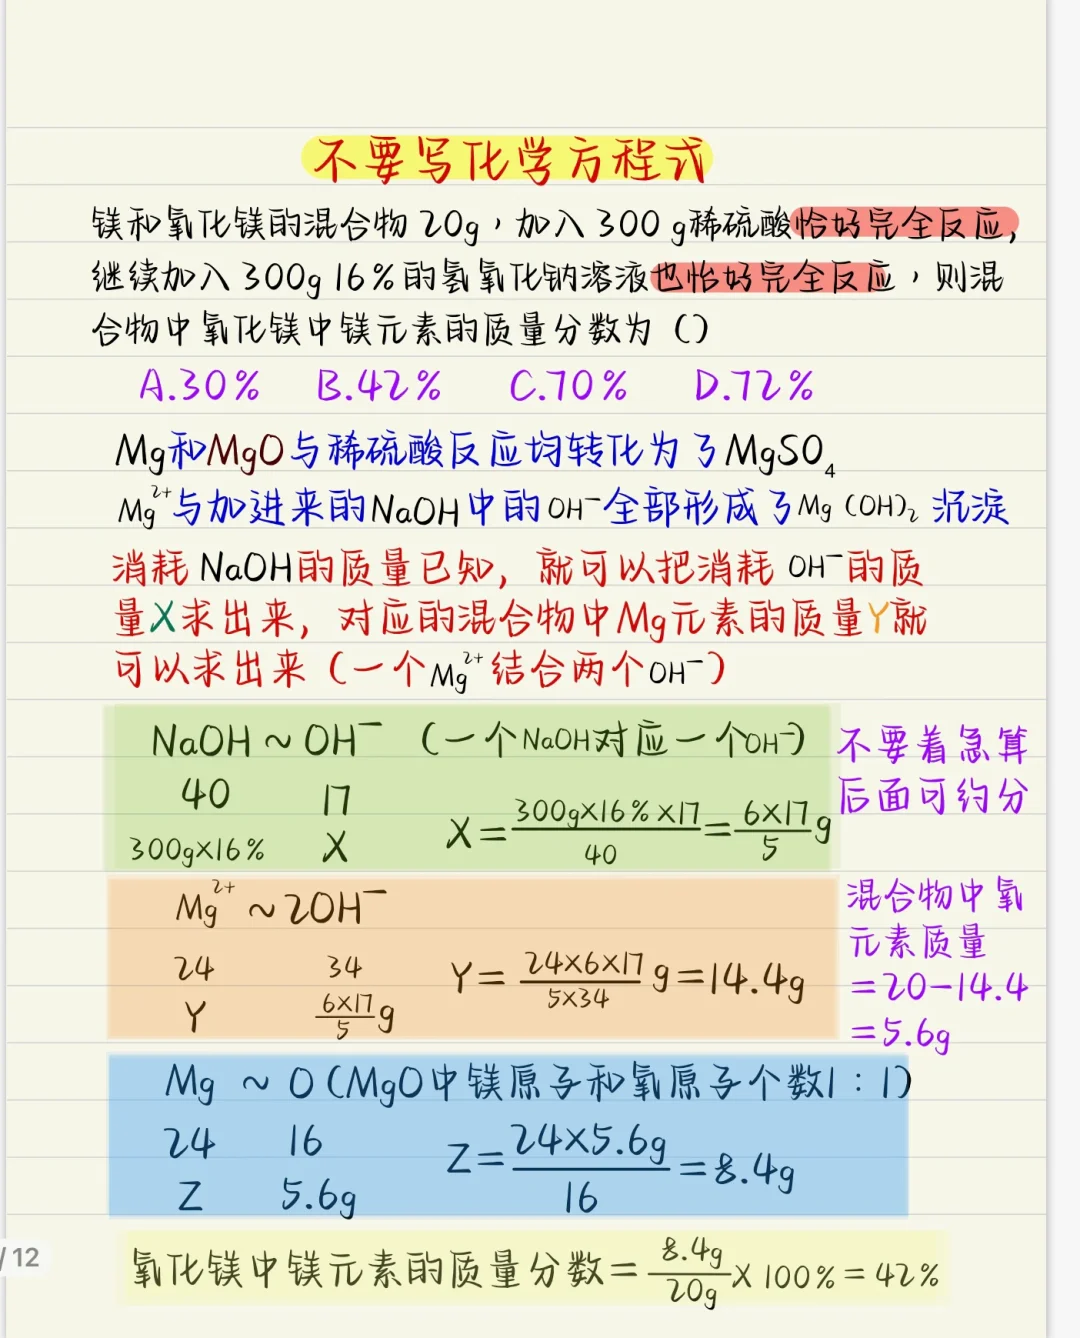 不要写化学方程式
镁和氧化镁的混合物20g,加入300g稀硫酸恰好完全反应,
继续加入300g 16%的氢氧化钠溶液也恰好完全反应,则混
合物中氧化镁中镁元素的质量分数为()
A.30% B.42% C.70% D.72%
Mg和MgO与稀硫酸反应均转化为了MgSO₄
Mg²⁺与加进来的NaOH中的OH⁻全部形成了Mg(OH)₂沉淀
消耗NaOH的质量已知,就可以把消耗OH⁻的质
量X求出来,对应的混合物中Mg元素的质量Y就
可以求出来(一个Mg²⁺结合两个OH⁻)
NaOH ~ OH⁻ (一个NaOH对应一个OH⁻)
不要着急算
后面可约分
40 17
300g×16% X
X=300g×16%×17/40=6×17/5 g
Mg²⁺ ~ 2OH⁻
24 34
Y 6×17/5 g
Y=24×6×17/5×34 g=14.4g
混合物中氧
元素质量
=20-14.4
=5.6g
Mg ~ O(MgO中镁原子和氧原子个数1:1)
24 16
Z 5.6g
Z=24×5.6g/16=8.4g
/12
氧化镁中镁元素的质量分数=8.4g/20g×100%=42%